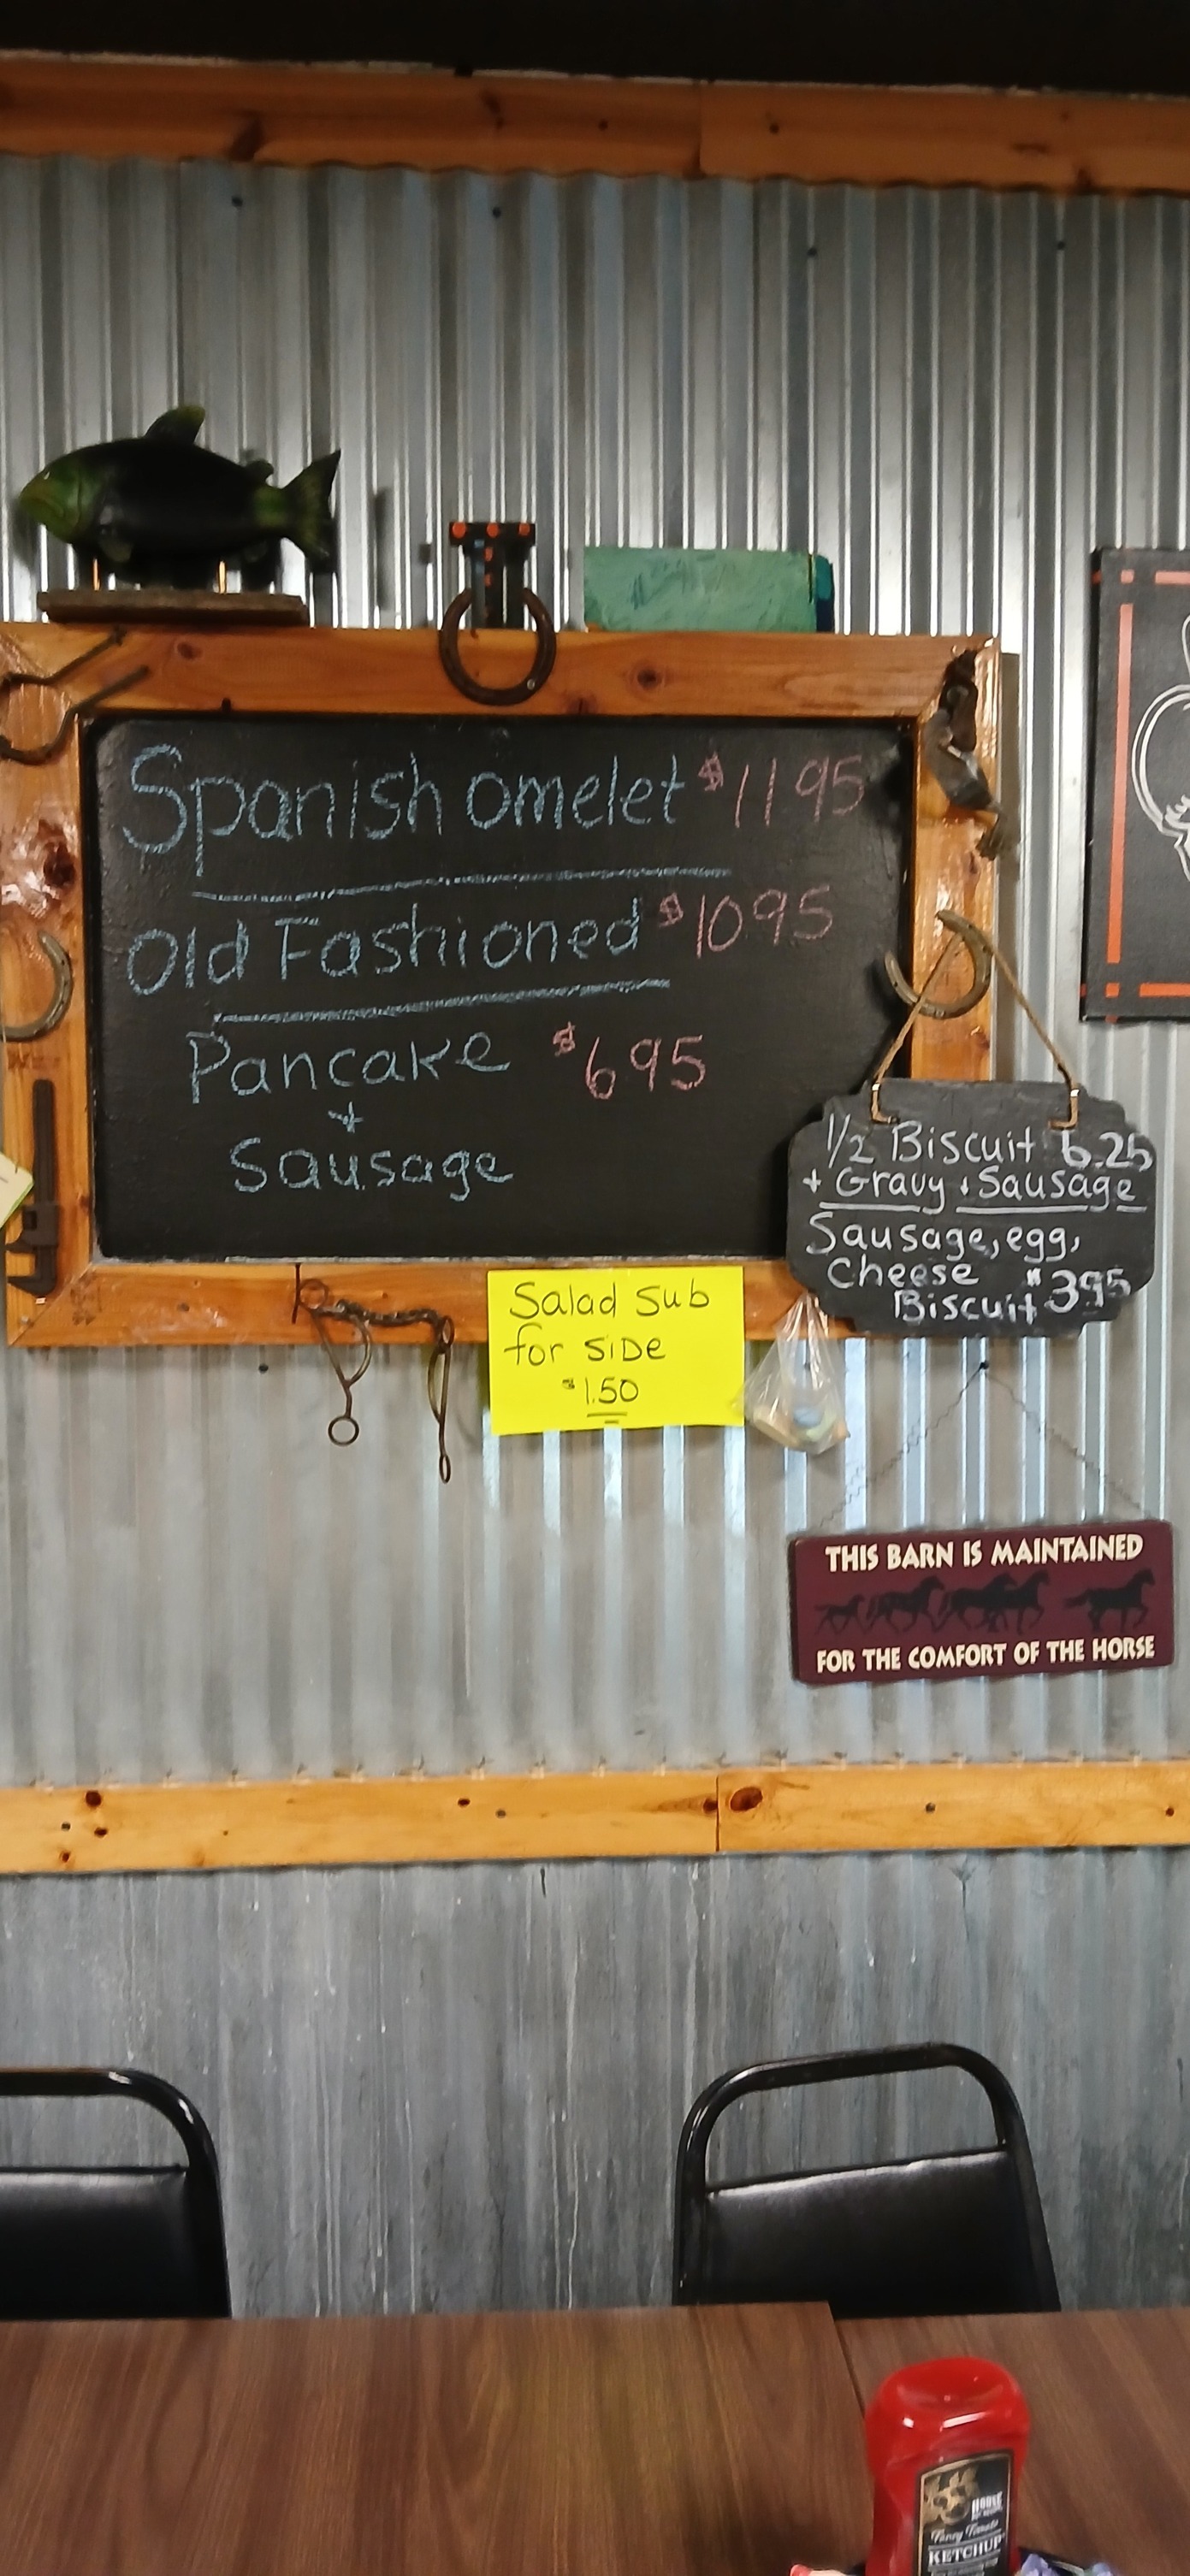 Spanish omelet $1195
Old Fashioned $1095
Pancake $695
+
Sausage
1/2 Biscuit 6.25
+ Gravy + Sausage
Sausage, egg,
Cheese $395
Biscuit
Salad Sub
for SIDE
$1.50
THIS BARN IS MAINTAINED
FOR THE COMFORT OF THE HORSE
HOUSE
Fancy Tomato
KETCHUP